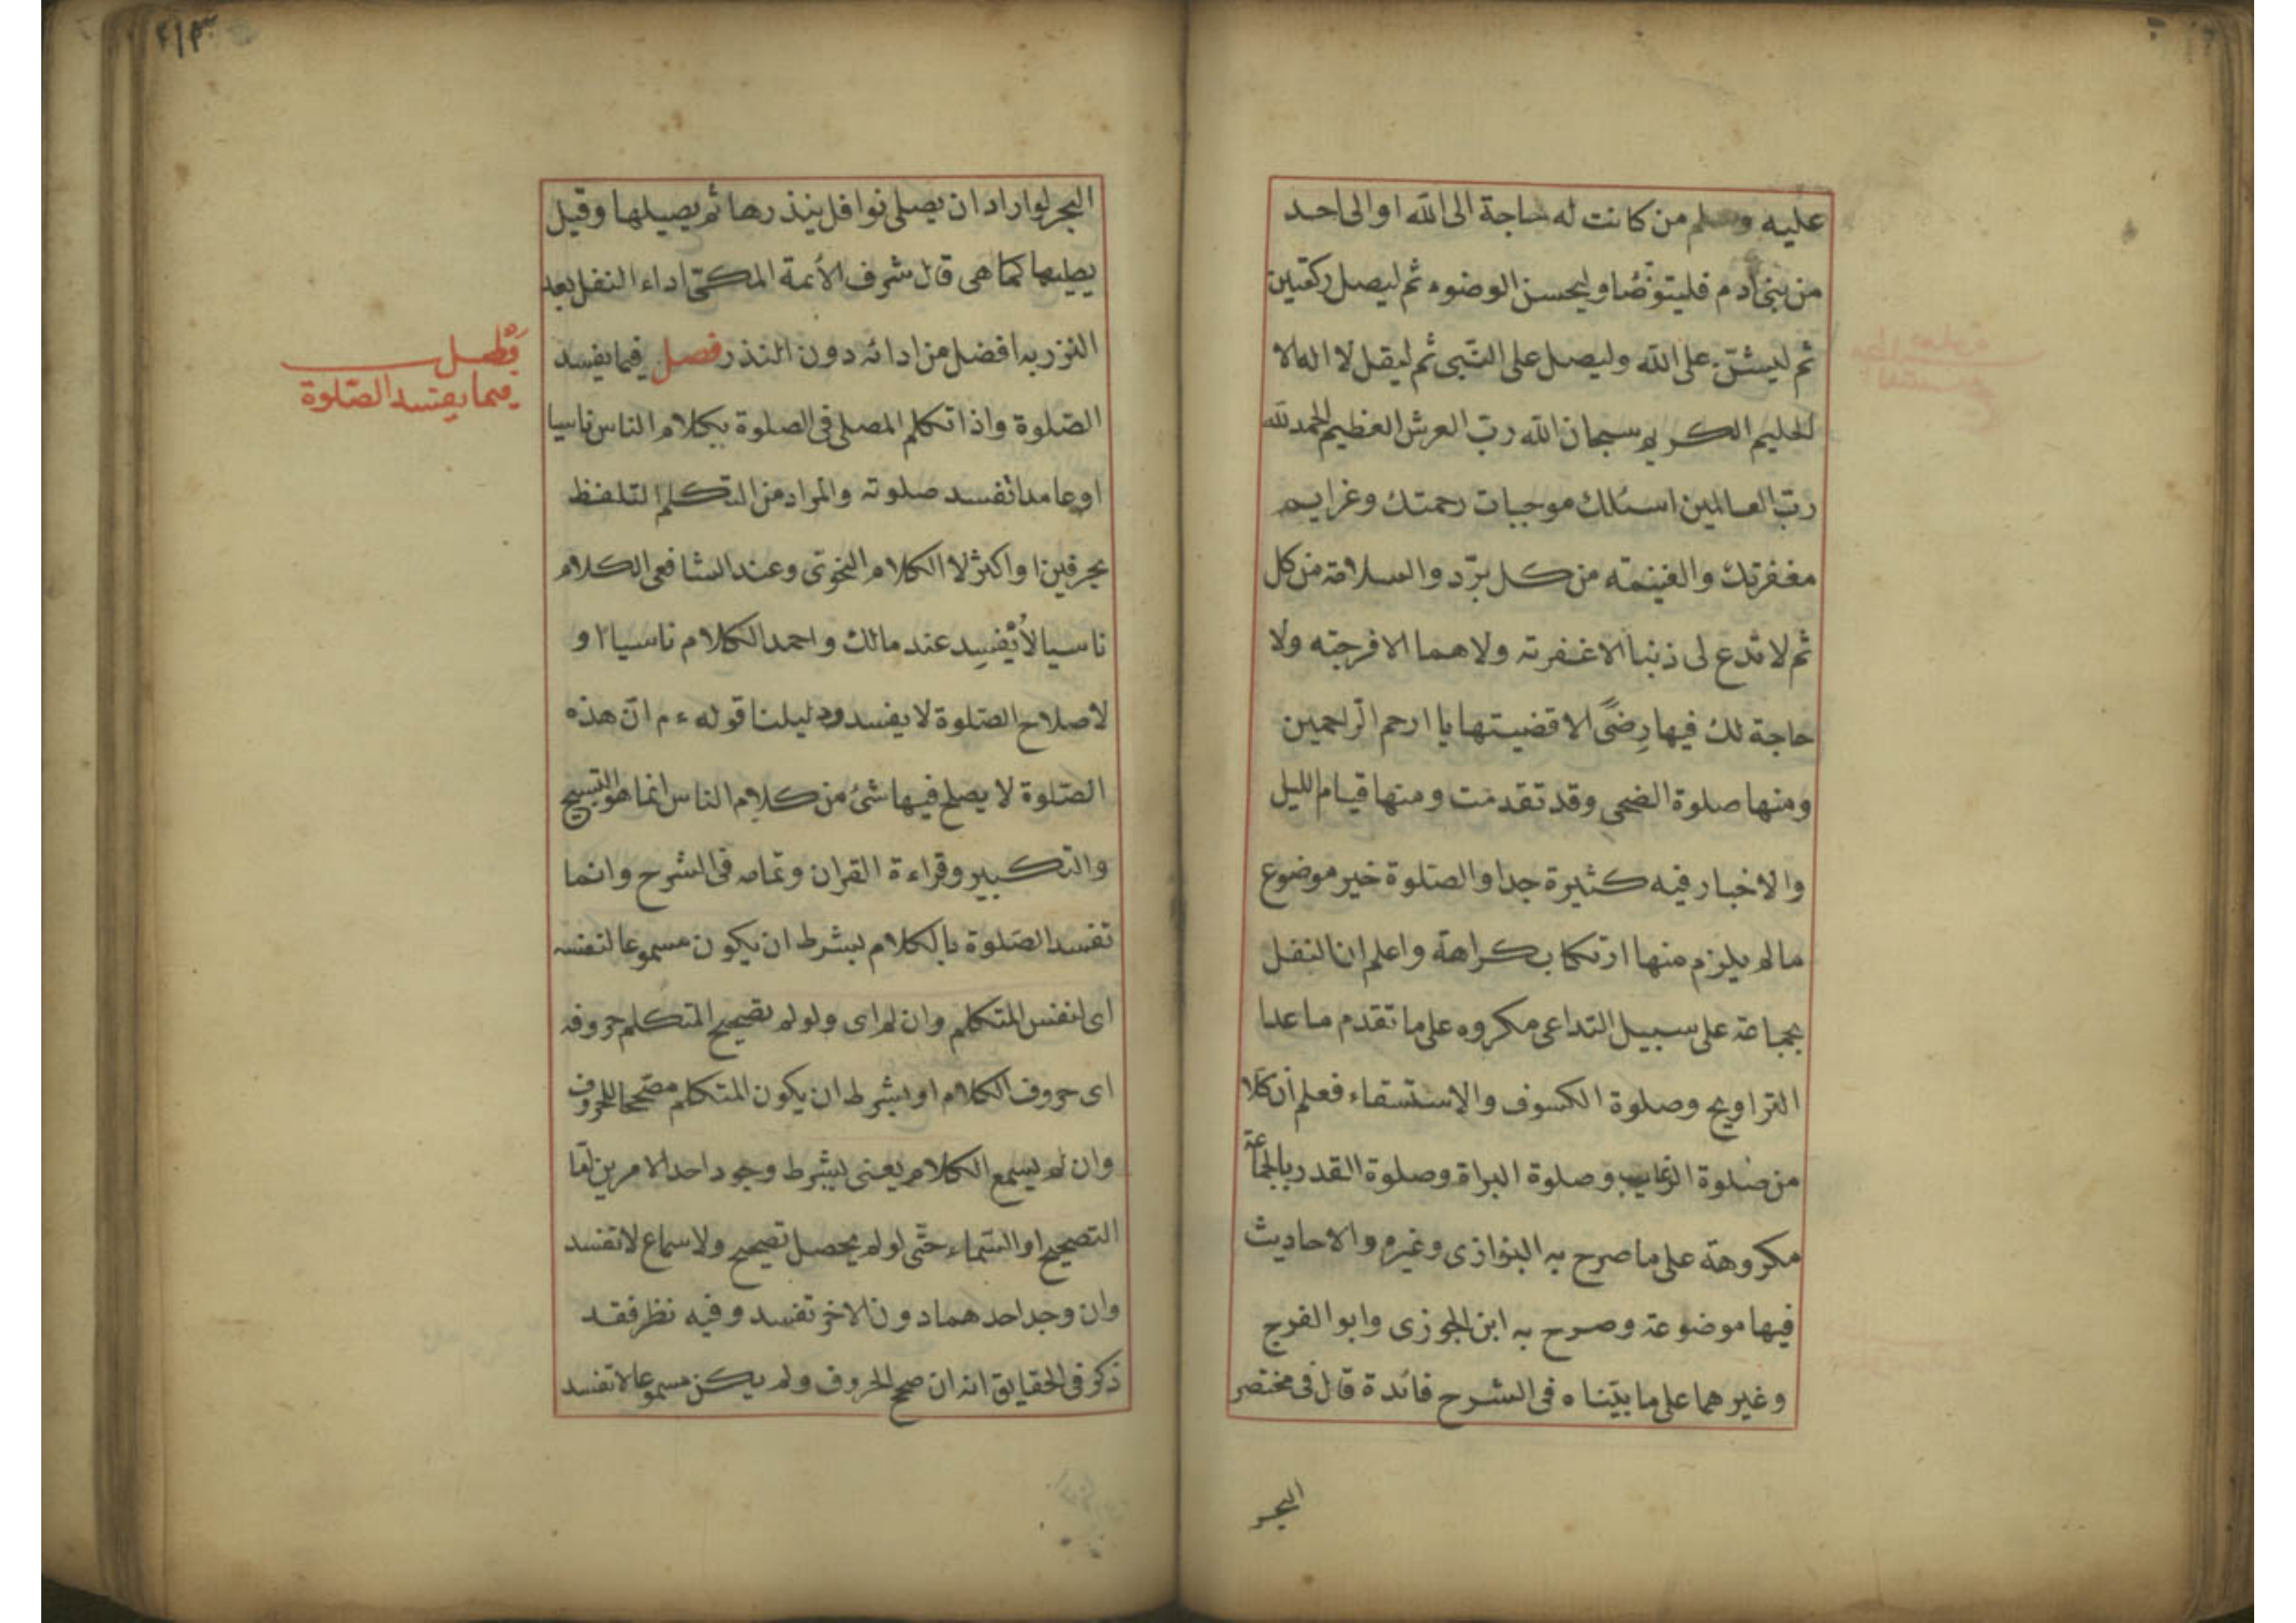 عليه وسلم من كانت له حاجة الى الله او الى احد
من بنى ادم فليتوضأ وليحسن الوضوء ثم ليصل ركعتين
ثم ليثن على الله وليصل على النبى ثم ليقل لا اله الا
الحليم الكريم سبحان الله رب العرش العظيم الحمد لله
رب العالمين اسئلك موجبات رحمتك وعزايم
مغفرتك والغنيمته من كل برّ والسلامة من كل
ثم لا تدع لى ذنبا الا غفرته ولا هما الا فرجته ولا
حاجة لك فيها رضًى الا قضيتها يا ارحم الراحمين
ومنها صلوة الضحى وقد تقدمت ومنها قيام الليل
والاخبار فيه كثيرة جدا والصّلوة خير موضوع
مالم يلزم منها ارتكاب كراهة واعلم ان النفل
بجماعة على سبيل التداعى مكروه على ما تقدم ما عدا
التراويح وصلوة الكسوف والاستسقاء فعلم أن كلا
من صلوة الرغايب وصلوة البراة وصلوة القدر بالجماعة
مكروهة على ما صرح به البزازى وغيره والاحاديث
فيها موضوعة وصرح به ابن الجوزى وابو الفرج
وغيرهما على ما بيّناه فى الشرح فائدة قال فى مختصر
البحر
٤١٣
البحر لو اراد ان يصلى نوافل ينذرها ثم يصيلها وقيل
يصليها كما هى قال شرف الأئمة المكىّ اداء النفل بعد
النزر به افضل من ادائه دون النذر فصل فيما يفسد
الصّلوة واذا تكلم المصلى فى الصلوة بكلام الناس ناسيا
او عامدا تفسد صلوته والمراد من التكلم التلفظ
بحرفين او اكثر لا الكلام النحوىّ وعند الشافعى الكلام
ناسيا لا يُفسِد عند مالك واحمد الكلام ناسيا او
لاصلاح الصّلوة لا يفسد ودليلنا قوله ءم انّ هذه
الصّلوة لا يصلح فيها شئ من كلام الناس انما هو التسبيح
والتكبير وقراءة القران وتمامه فى الشرح وانما
تفسد الصّلوة بالكلام بشرط ان يكون مسموعا لنفسه
اى لنفس المتكلم وان لم اى ولو لم تصحيح المتكلم حروفه
اى حروف الكلام او بشرط ان يكون المتكلم مصححا للحروف
وان لم يسمع الكلام يعنى بشرط وجود احد الامرين امّا
التصحيح او السّماء حتّى لو لم يحصل تصحيح ولا سماع لا تفسد
وان وجد احدهما دون الاخر تفسد وفيه نظر فقد
ذكر فى الحقايق انه ان صحح الحروف ولم يكن مسموعا لا تفسد
فصل
فيما يفسد الصّلوة